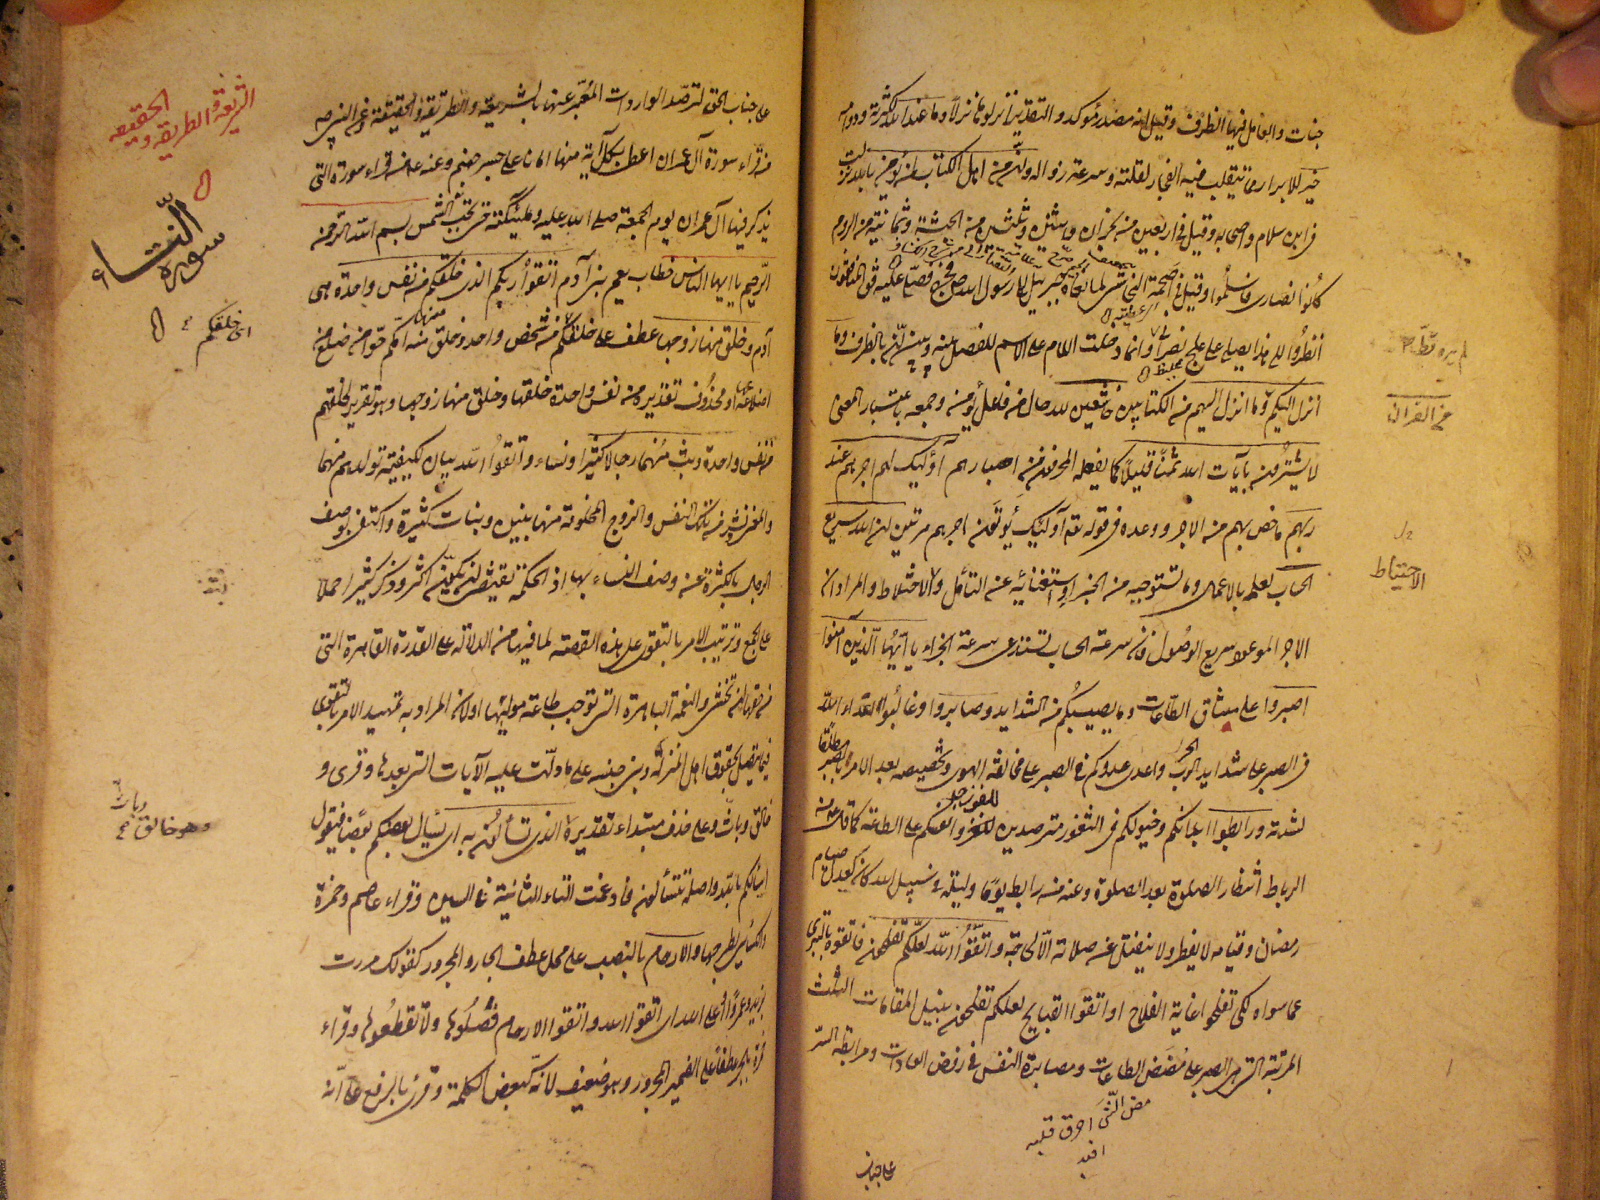 جنات والعامل فيها الظرف وقيل انه مصدر مؤكد والتقدير انزلوها نزلا وما عند الله لكثرته ودوامه
خير للابرار مما يتقلب فيه الفجار لقلته وسرعة زواله وان من اهل الكتاب لمن يؤمن بالله نزلت
في ابن سلام واصحابه وقيل في اربعين من نجران واثنين وثلثين من الحبشة وثمانية من الروم
كانوا نصارى فاسلموا وقيل في اصحمة النجاشي لما نعاه جبريل الى رسول الله فخرج فصلى عليه فقال المنافقون
انظروا الى هذا يصلي على علج نصراني وانما دخلت اللام على الاسم للفصل بينه وبين ان بالظرف وما
انزل اليكم وما انزل اليهم من الكتابين خاشعين لله حال من فاعل يؤمن وجمعه باعتبار المعنى
لا يشترون بآيات الله ثمنا قليلا كما يفعله المحرفون من احبارهم اولئك لهم اجرهم عند
ربهم ما خص بهم من الاجر ووعده في قوله تعم اولئك يؤتون اجرهم مرتين ان الله سريع
الحساب لعلمه بالاعمال وما تستوجبه من الجزاء واستغنائه عن التأمل والاحتياط والمراد ان
الاجر الموعود سريع الوصول فان سرعة الحساب تستدعى سرعة الجزاء يا ايها الذين آمنوا
اصبروا على مشاق الطاعات وما يصيبكم من الشدايد وصابروا وغالبوا اعداء الله
في الصبر على شدايد الحرب واعدى عدوكم في الصبر على مخالفة الهوى وتخصيصه بعد الامر بالصبر مطلقا
لشدته ورابطوا ابدانكم وخيولكم في الثغور مترصدين للغزو وانفسكم على الطاعة كما قال
الرباط انتظار الصلوة بعد الصلوة وعنه من رابط يوما وليلة في سبيل الله كان كعدل صيام
رمضان وقيامه لا يفطر ولا ينفتل عن صلاته الا لحاجة واتقوا الله لعلكم تفلحون فاتقوه بالتبرى
عما سواه لكى تفلحوا غاية الفلاح او اتقوا القبايح لعلكم تفلحون بنيل المقامات الثلث
المرتبة التي هي الصبر على مضض الطاعات ومصابرة النفس في رفض العادات ومرابطة السر
مض الشى احرق قلبه
على جناب
عن القران
الاحتياط
على جناب الحق لترصد الواردات المعبر عنها بالشريعة والطريقة والحقيقة وعن النبي
من قراء سورة آل عمران اعطى بكل آية منها امانا على جسر جهنم وعنه من قراء سورة التى
يذكر فيها آل عمران يوم الجمعة صلى الله عليه وملئكته حتى تحجب الشمس بسم الله الرحمن
الرحيم يا ايها الناس خطاب يعم بنى آدم اتقوا ربكم الذى خلقكم من نفس واحدة هى
آدم وخلق منها زوجها عطف على خلقكم من شخص واحد وخلق منه امكم حوا من ضلع من
اضلاعه او محذوف تقديره من نفس واحدة خلقها وخلق منها زوجها وهو تقرير لخلقهم
من نفس واحدة وبث منهما رجالا كثيرا ونساء واتقوا الله بيان لكيفية تولدهم منهما
والمعنى نشر من تلك النفس والزوج المخلوقة منها بنين وبنات كثيرة واكتفى بوصف
الرجال بالكثرة عن وصف النساء بها اذ الحكمة تقتضى ان يكن اكثر وذكر كثيرا حملا
على الجمع وترتيب الامر بالتقوى على هذه القصة لما فيها من الدلالة على القدرة القاهرة التى
من حقها ان تخشى والنعمة الباهرة التى توجب طاعة موليها اولان المراد به تمهيد الامر بالتقوى
فيما يتصل بحقوق اهل المنزل وبنى جنسه على ما دلت عليه الآيات التى بعدها وقرى و
خالق وباث على حذف مبتداء تقديره الذى تسألون به اى يسال بعضكم بعضا فيقول
اسالك بالله واصله تتسألون فادغمت التاء الثانية في السين وقراء عاصم وحمزة
والكسائى بطرحها والارحام بالنصب على محل عطف الجار والمجرور كقولك مررت
بزيد وعمروا او على الله اى اتقوا الله واتقوا الارحام فصلوها ولا تقطعوها وقراء
حمزة بالجر عطفا على الضمير المجرور وهو ضعيف لانه كبعض الكلمة وقرئ بالرفع على انه
الشريعة والطريقة والحقيقة
سورة النساء
اى خلقكم
منها
وهو خالق وباث